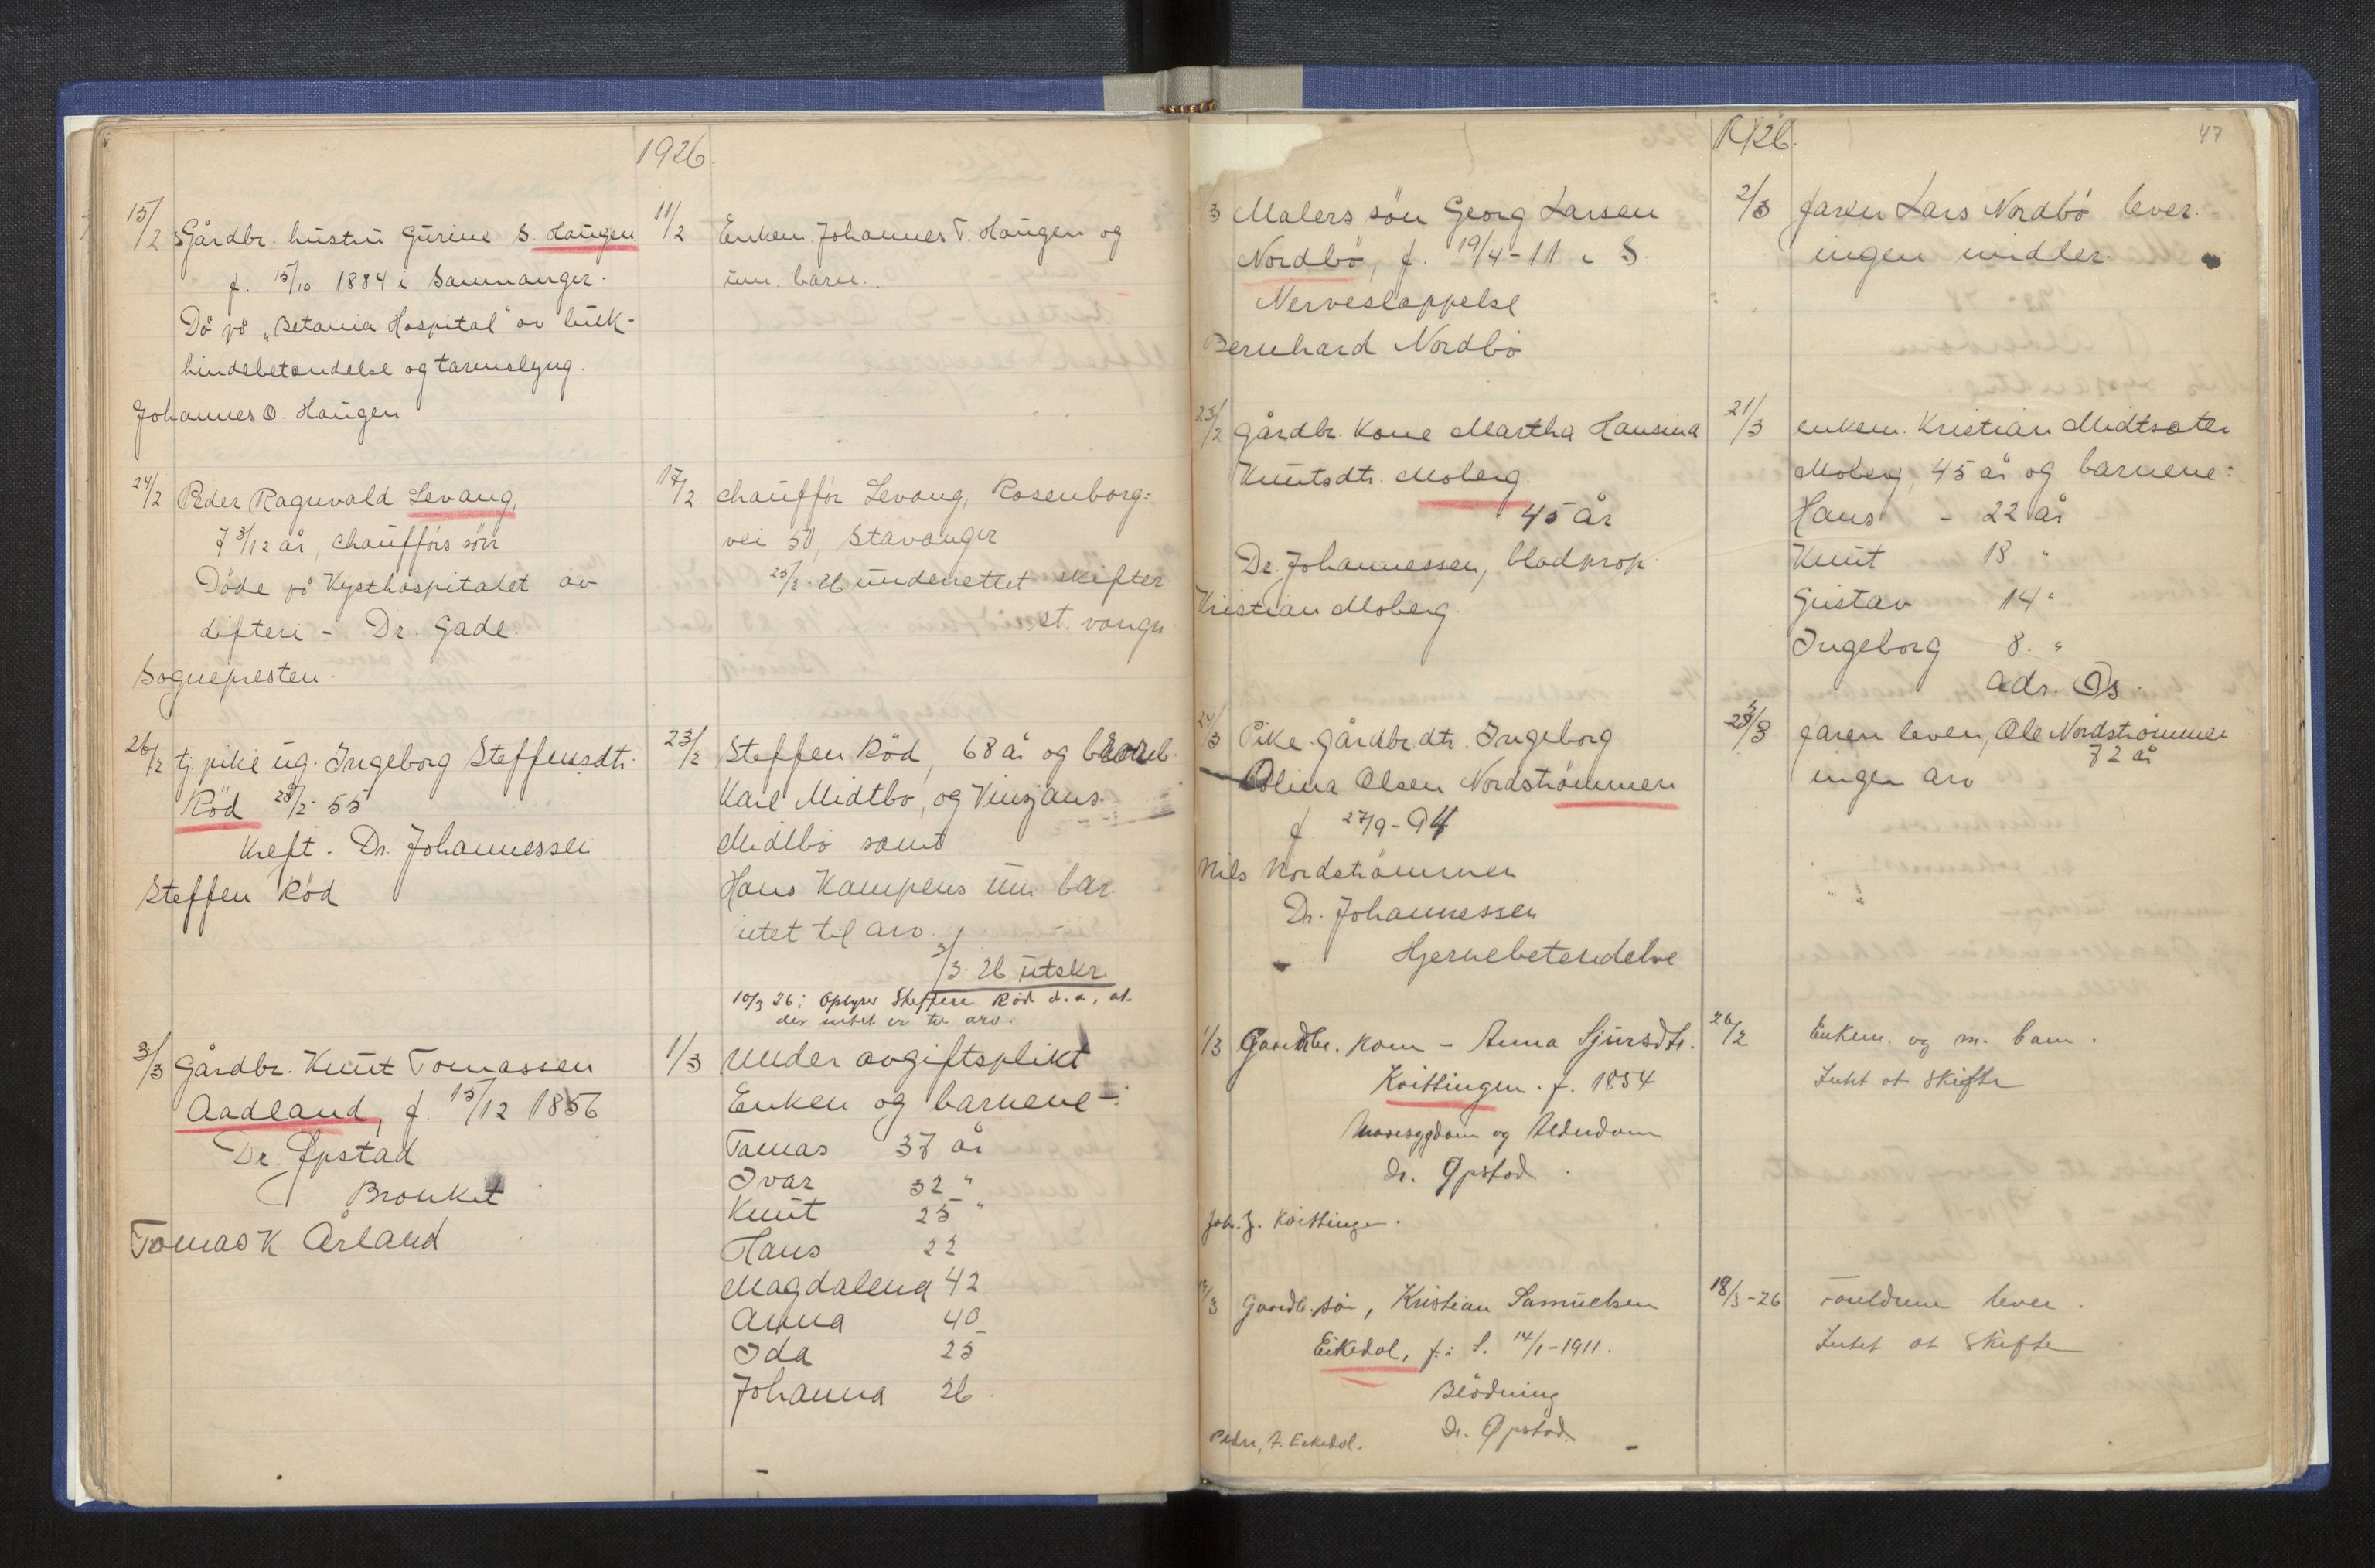 1926.
15/2 Gårdbr. hustru Gurine S. Haugen
f. 15/10 1884 i Samnanger.
Dö på "Betania Hospital" av buk-
hindebetendelse og tarmslyng.
Johannes O. Haugen
11/2 Enkem. Johannes T. Haugen og
um. barn.
24/2 Peder Ragnvald Levang,
7 3/12 år, chaufförs sön
Döde på Kysthospitalet av
difteri - Dr. Gade.
Sognepresten.
17/2 chafför Levang, Rosenborg=
vei 50, Stavanger
25/2-26 underrettet skifter
st. vanger
26/2 tj. pike ug. Ingeborg Steffensdtr.
Röd 28/2-55
Kreft. Dr. Johannessen
Steffen Röd
23/2 Steffen Röd, 68 år og
Karl Midtbö, og
Midtbö samt
Hans Kampens um. bar.
intet til arv.
5/3-26 utskr.
10/3 26: Oplyser Steffen Röd d.a., at
der intet er til arv.
3/3 Gårdbr. Knut Tomassen
Aadland, f. 15/12 1856
Dr. Øpstad
Bronkit
Tomas K. Årland
1/3 Under avgiftsplikt
Enken og barnene:
Tomas 37 år
Ivar 32 "
Knut 25 "
Hans 22
Magdalena 42
Anna 40
Ida 25
Johanna 26.
1926.
47
3 Malers sön Georg Larsen
Nordbö, f. 19/4-11 i S.
Nerveslappelse
Bernhard Nordbö
2/3 faren Lars Nordbö lever.
ingen midler.
23/2 gårdbr. kone Martha Hansina
Knutsdtr. Moberg.
45 år
Dr. Johannessen, blodprop
Kristian Moberg.
21/3 enkem. Kristian Midtsæter
Moberg, 45 år og barnene:
Hans - 22 år
Knut 18 "
Gustav 14 "
Ingeborg 8. "
adr. Os.
24/3 Pike gårdbr dtr. Ingeborg
Olina Olsen Nordströmmen
f. 27/9-94
Nils Nordströmmen
Dr. Johannessen
Hjernebetendelse
faren lever, Ole Nordströmmen
72 år
ingen arv
1/3 Gaardbr. kone - Anna Sjursdtr.
Kvittingen. f. 1854
og Alderdom
Dr. Øpstad.
Joh. J. Kvittingen.
26/2 Enkem. og m. barn.
Intet at skifte
3 Gaardb. sön, Kristian Samuelsen
Eikedal, f. i S. 14/1-1911.
Blödning
Dr. Øpstad.
Peder, A. Eikedal.
18/3-26 Forældrene lever.
Intet at skifte